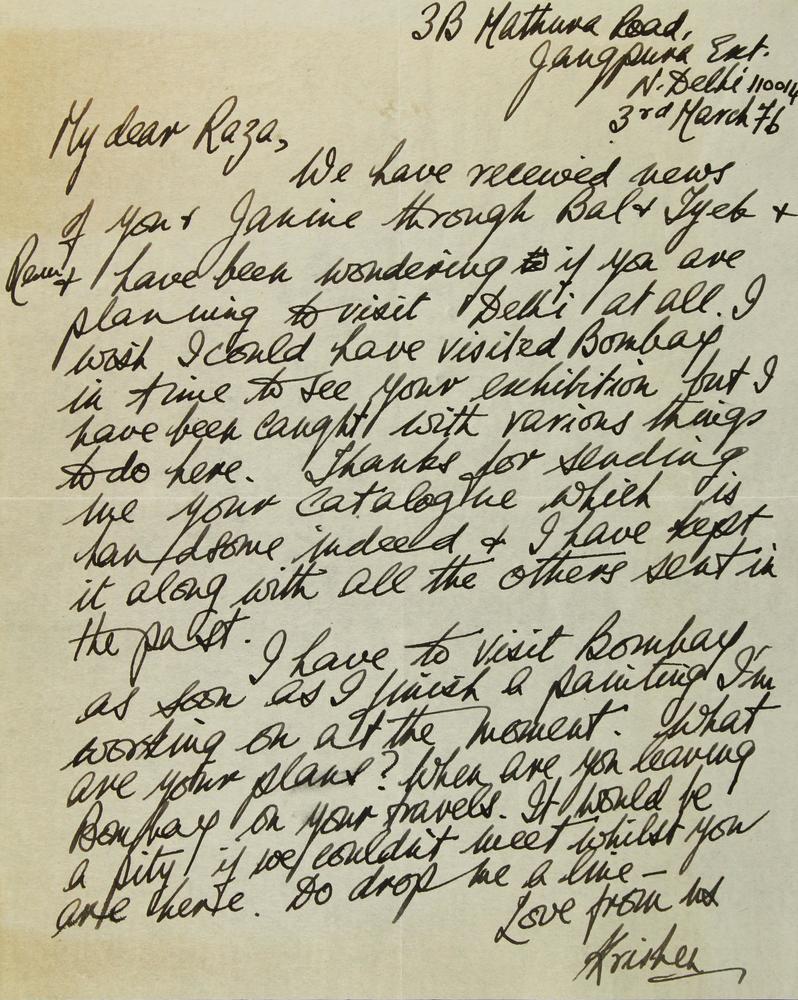 3B Mathura Road,
Jangpura Ext.
N. Delhi 110014
3rd March 76
My dear Raza,
We have received news
of you & Janine through Bal & Tyeb &
Renu & have been wondering if you are
planning to visit Delhi at all. I
wish I could have visited Bombay
in time to see your exhibition but I
have been caught with various things
to do here. Thanks for sending
me your catalogue which is
handsome indeed & I have kept
it along with all the others sent in
the past.
I have to visit Bombay
as soon as I finish a painting I'm
working on at the moment. What
are your plans? When are you leaving
Bombay on your travels. It would be
a pity if we couldn't meet whilst you
are here. Do drop me a line —
Love from us
Krishen